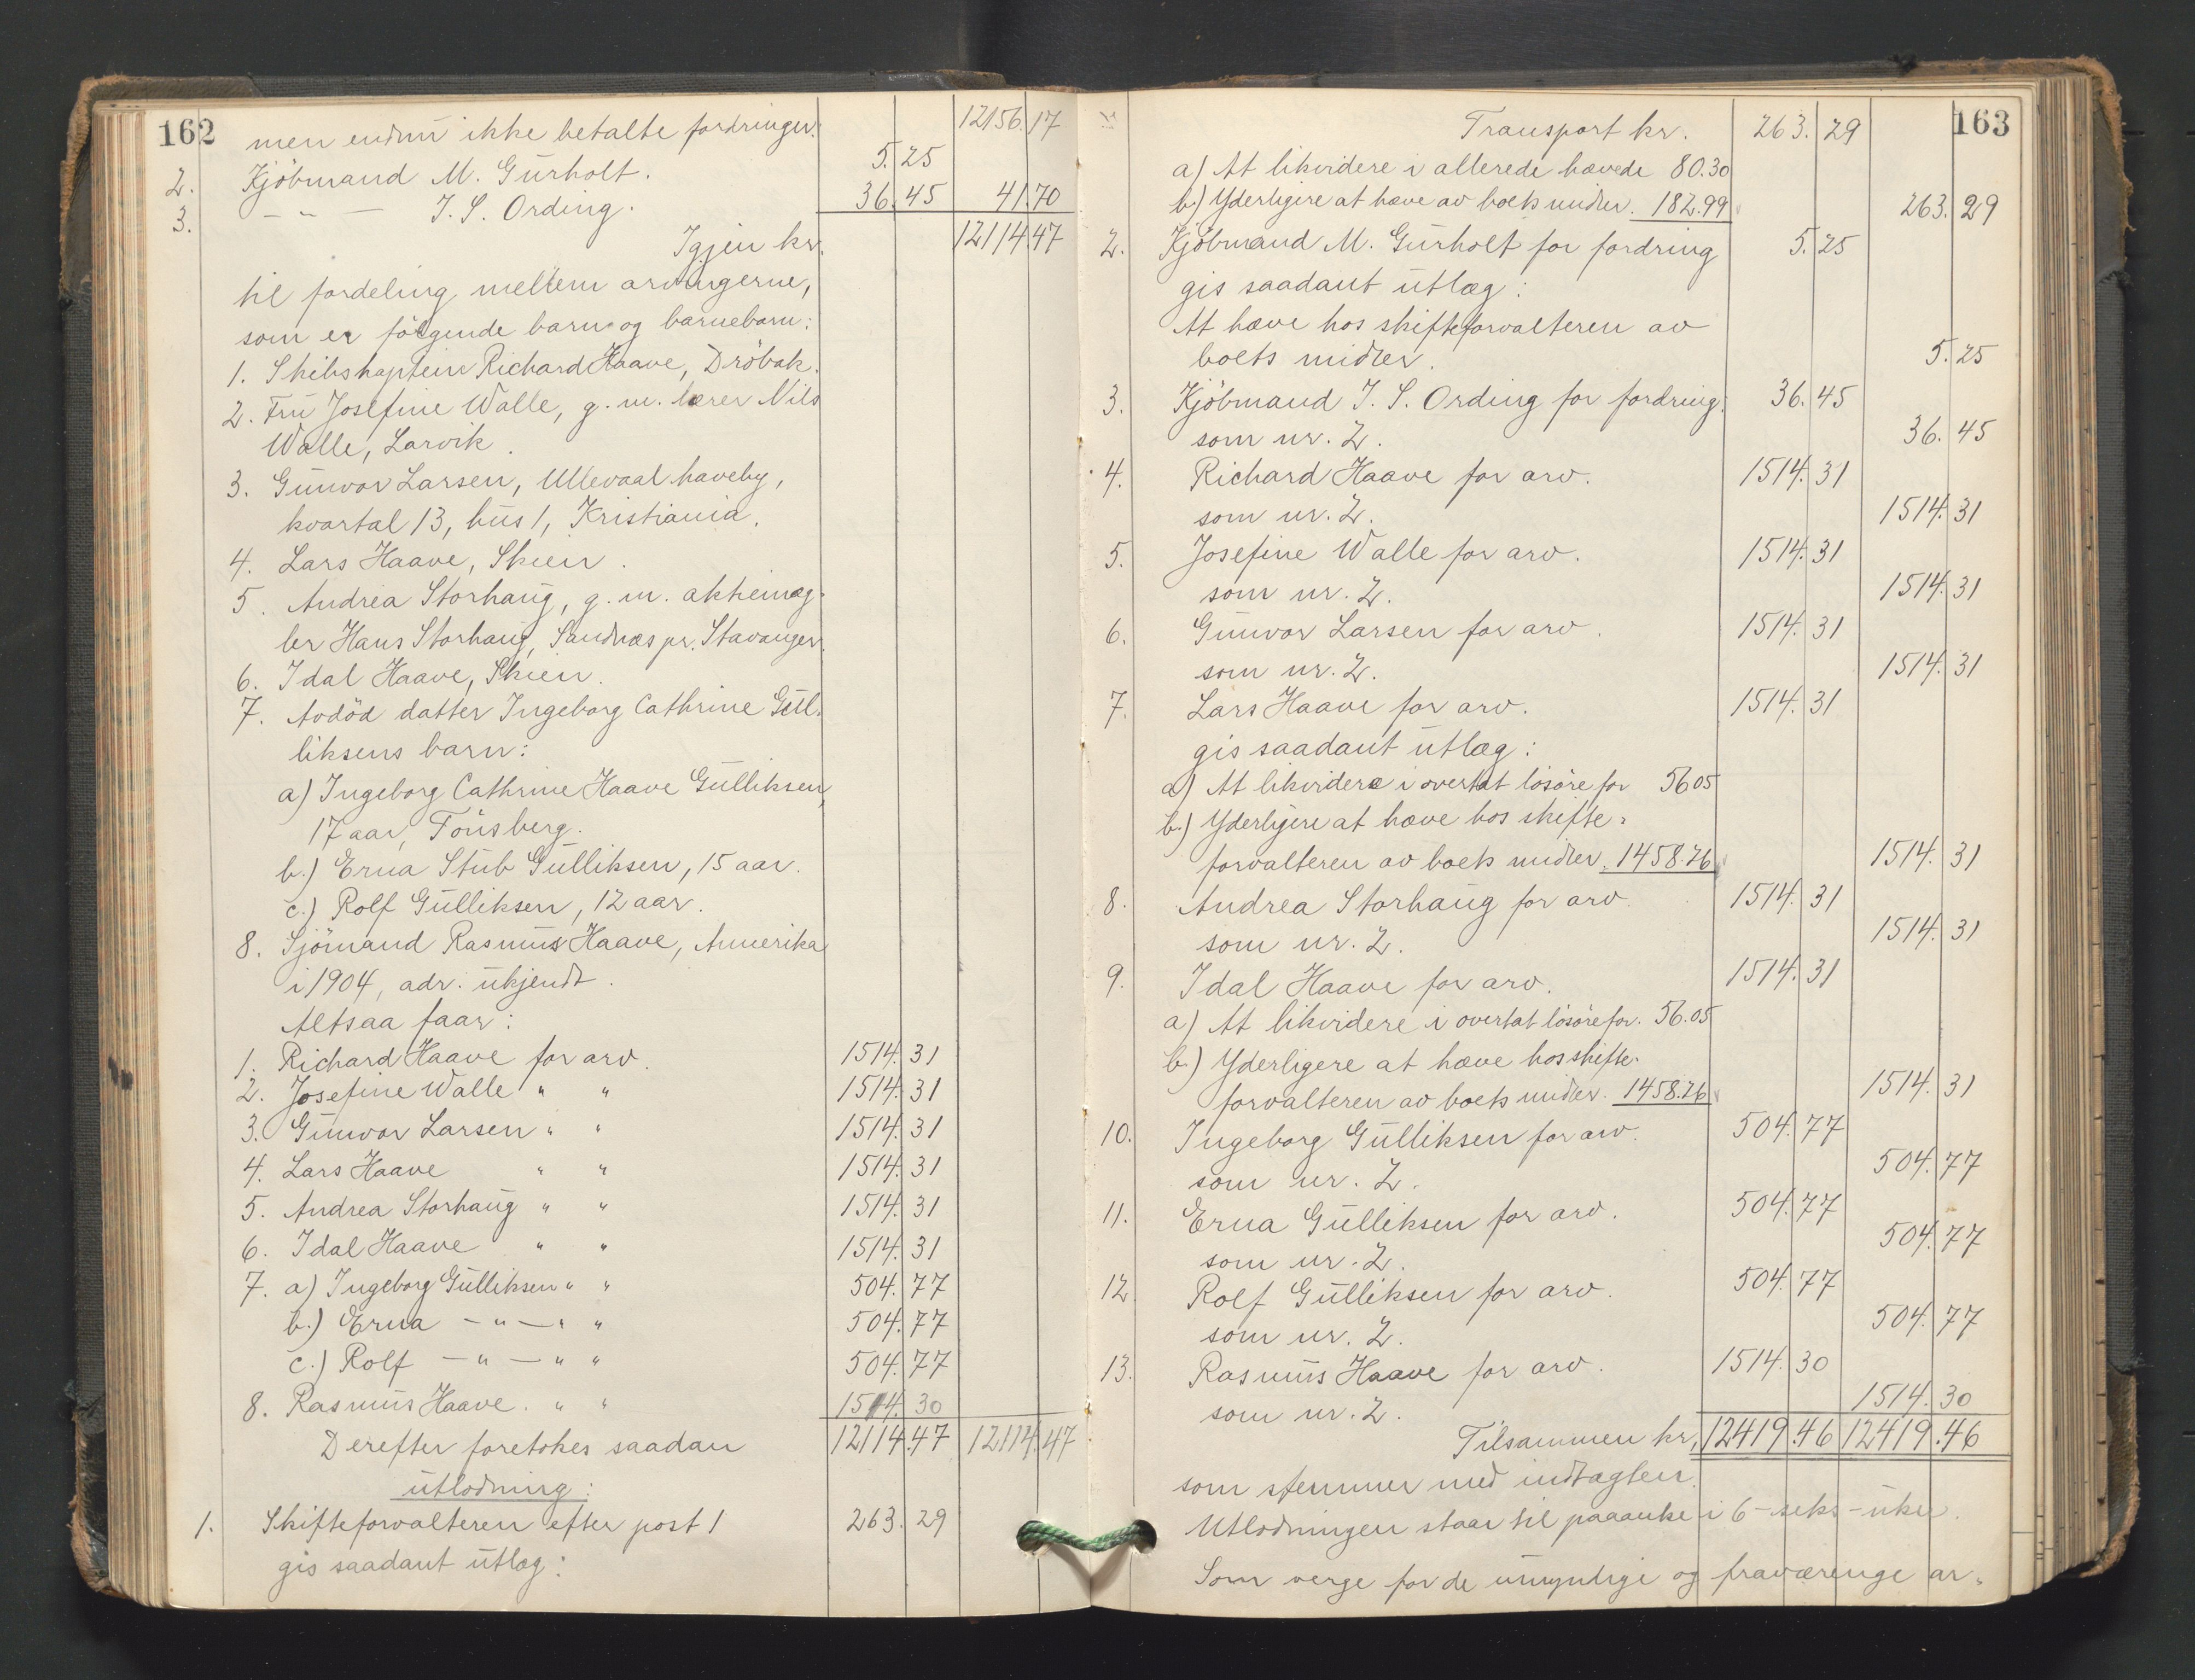 162
men endnu ikke betalte fordringer: 12156.17
2. Kjöbmand M. Gurholt. 5.25
3. — " — J. S. Ording. 36.45 41.70
Igjen kr. 12114.47
til fordeling mellem arvingerne,
som er følgende barn og barnebarn:
1. Skibskaptein Richard Haave, Dröbak.
2. Fru Josefine Walle, g. m. lærer Nils
Walle, Larvik.
3. Gunvor Larsen, Ullevaal haveby,
kvartal 13, hus 1, Kristiania.
4. Lars Haave, Skien.
5. Andrea Storhaug, g. m. aktiemæg-
ler Hans Storhaug, Sandnæs pr. Stavanger.
6. Idal Haave, Skien.
7. Avdöd datter Ingeborg Cathrine Gul-
liksens barn:
a) Ingeborg Cathrine Haave Gulliksen,
17 aar, Tönsberg.
b.) Erna Stub Gulliksen, 15 aar.
c.) Rolf Gulliksen, 12 aar.
8. Sjömand Rasmus Haave, Amerika
i 1904, adr. ukjendt.
Altsaa faar:
1. Richard Haave for arv. 1514.31
2. Josefine Walle " " 1514.31
3. Gunvor Larsen " " 1514.31
4. Lars Haave " " 1514.31
5. Andrea Storhaug " " 1514.31
6. Idal Haave " " 1514.31
7. a) Ingeborg Gulliksen " " 504.77
b.) Erna — " — " " 504.77
c.) Rolf — " — " " 504.77
8. Rasmus Haave. " " 1514.30
Derefter foretokes saadan 12114.47 12114.47
utlodning:
1. Skifteforvalteren efter post 1 263.29
gis saadant utlæg:
163
Transport kr. 263.29
a) At likvidere i allerede hævede 80.30
b.) Yderligere at hæve av boets midler. 182.99 263.29
2. Kjöbmand M. Gurholt for fordring 5.25
gis saadant utlæg:
At hæve hos skifteforvalteren av
boets midler. 5.25
3. Kjöbmand J. S. Ording for fordring. 36.45
som nr. 2. 36.45
4. Richard Haave for arv. 1514.31
som nr. 2. 1514.31
5. Josefine Walle for arv. 1514.31
som nr. 2. 1514.31
6. Gunvor Larsen for arv. 1514.31
som nr. 2. 1514.31
7. Lars Haave for arv. 1514.31
gis saadant utlæg:
a) At likvidere i overtat lösöre for 56.05
b.) Yderligere at hæve hos skifte-
forvalteren av boets midler. 1458.26 1514.31
8. Andrea Storhaug for arv. 1514.31
som nr. 2. 1514.31
9. Idal Haave for arv. 1514.31
a) At likvidere i overtat lösöre for. 56.05
b.) Yderligere at hæve hos skifte-
forvalteren av boets midler. 1458.26 1514.31
10. Ingeborg Gulliksen for arv. 504.77
som nr. 2. 504.77
11. Erna Gulliksen for arv. 504.77
som nr. 2. 504.77
12. Rolf Gulliksen for arv. 504.77
som nr. 2. 504.77
13. Rasmus Haave for arv. 1514.30
som nr. 2. 1514.30
Tilsammen kr. 12419.46 12419.46
som stemmer med indtægten.
Utlodningen staar til paaanke i 6 - seks - uker.
Som verge for de umyndige og fraværenge ar-